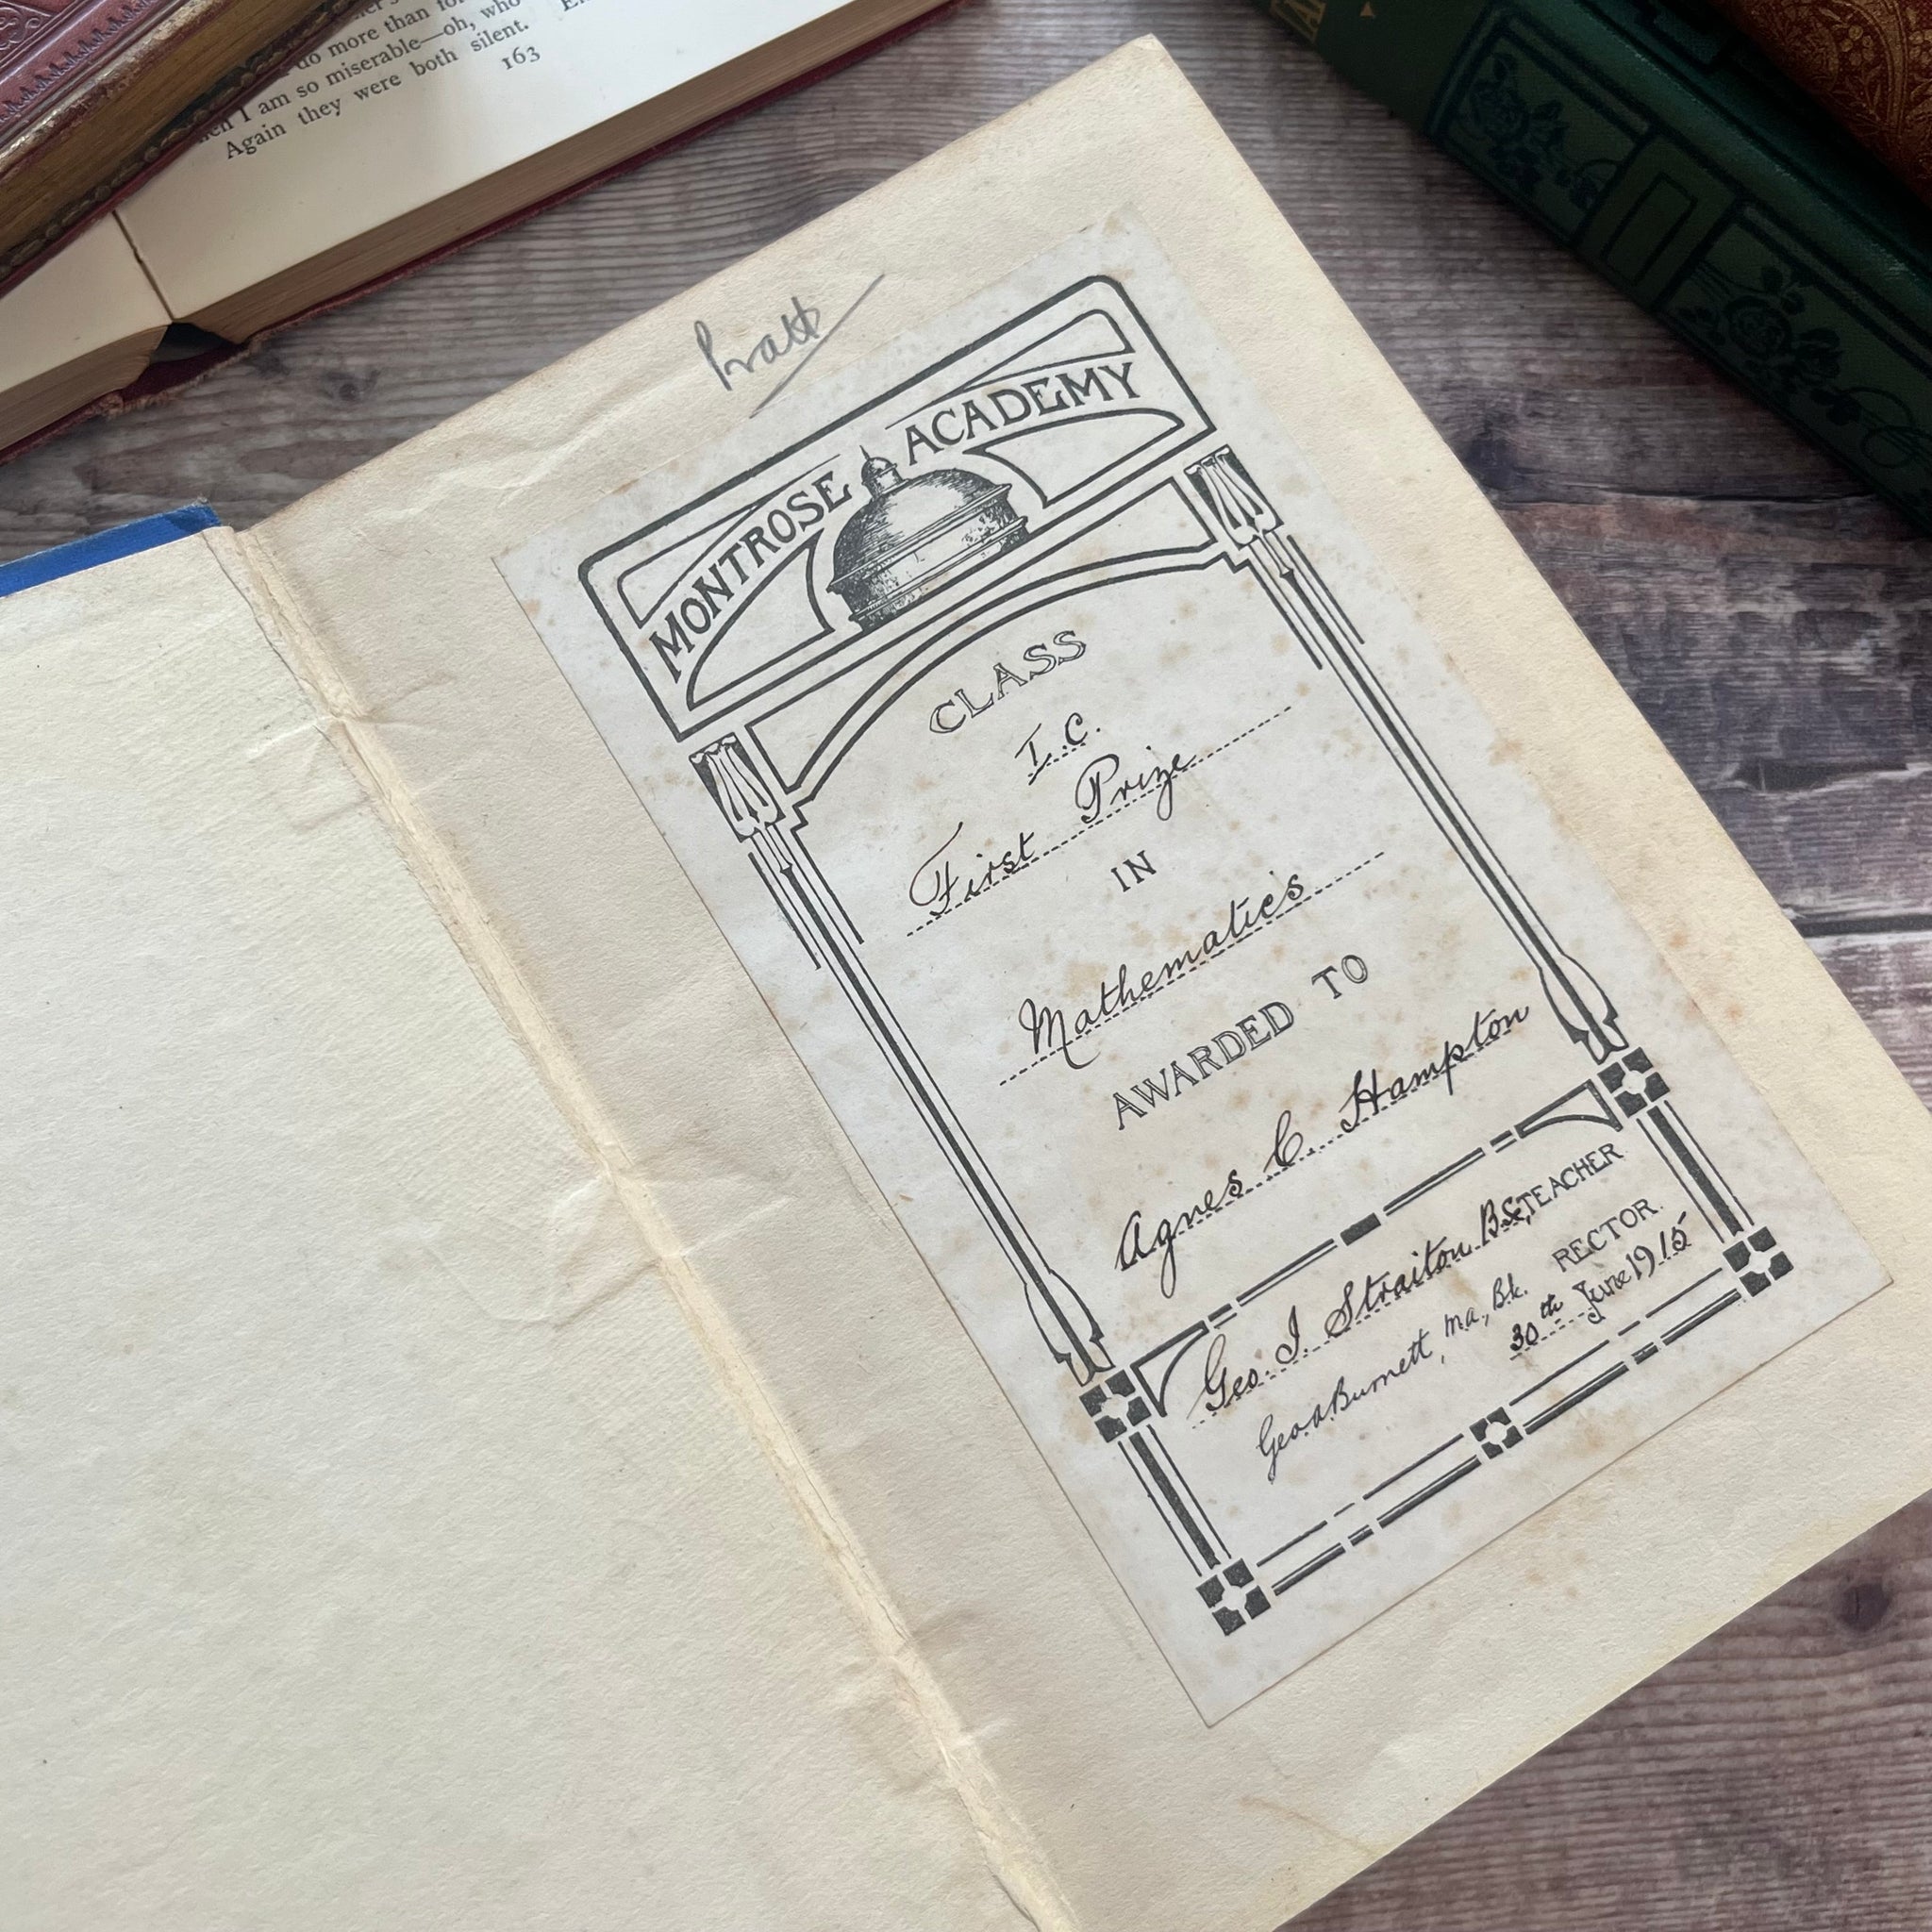 do more than
I am so miserable—oh, who
Again they were both silent.
163
MONTROSE ACADEMY
CLASS
I.C.
First Prize
IN
Mathematics
AWARDED TO
Agnes C. Hampton
Geo. I. Straiton B.Sc. TEACHER
Geo. A Burnett, M.A., RECTOR.
30th June 1915